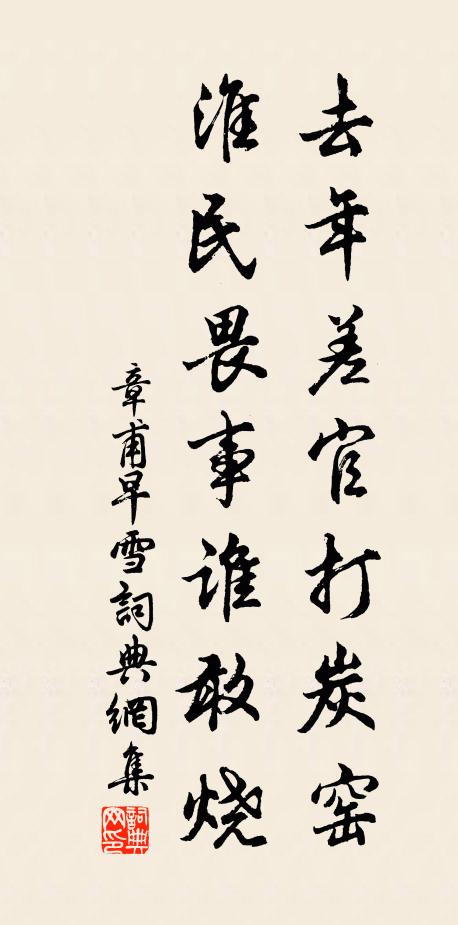 去年差官打炭窑
淮民畏事谁敢烧
章甫早雪詞典網集
詞典网印